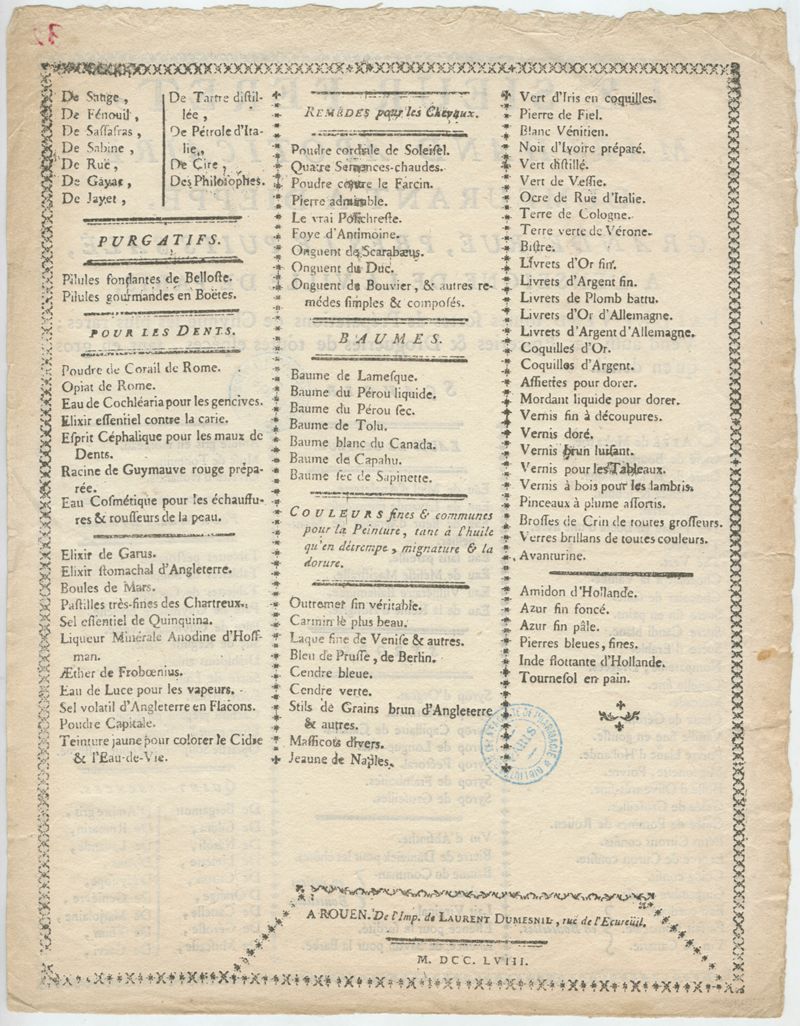 De Sauge,
De Fénouil,
De Saſſafras,
De Sabine,
De Rue,
De Gayac,
De Jayet,
De Tartre diſtil-
lée,
De Pétrole d'Ita-
lie,
De Cire,
Des Philoſophes.
PURGATIFS.
Pilules fondantes de Belloſte.
Pilules gourmandes en Boëtes.
POUR LES DENTS.
Poudre de Corail de Rome.
Opiat de Rome.
Eau de Cochléaria pour les gencives.
Elixir eſſentiel contre la carie.
Eſprit Céphalique pour les maux de
Dents.
Racine de Guymauve rouge prépa-
rée.
Eau Coſmétique pour les échauffu-
res & rouſſeurs de la peau.
Elixir de Garus.
Elixir ſtomachal d'Angleterre.
Boules de Mars.
Paſtilles très-fines des Chartreux.
Sel eſſentiel de Quinquina.
Liqueur Minérale Anodine d'Hoff-
man.
Æther de Frobœnius.
Eau de Luce pour les vapeurs.
Sel volatil d'Angleterre en Flacons.
Poudre Capitale.
Teinture jaune pour colorer le Cidre
& l'Eau-de-Vie.
REMÈDES pour les Chevaux.
Poudre cordiale de Soleiſel.
Quatre Semences-chaudes.
Poudre contre le Farcin.
Pierre admirable.
Le vrai Polichreſte.
Foye d'Antimoine.
Onguent de Scarabæus.
Onguent du Duc.
Onguent de Bouvier, & autres re-
médes ſimples & compoſés.
BAUMES.
Baume de Lameſque.
Baume du Pérou liquide.
Baume du Pérou ſec.
Baume de Tolu.
Baume blanc du Canada.
Baume de Capahu.
Baume ſec de Sapinette.
COULEURS fines & communes
pour la Peinture, tant à l'huile
qu'en détrempe, mignature & la
dorure.
Outremer fin véritable.
Carmin le plus beau.
Laque fine de Veniſe & autres.
Bleu de Pruſſe, de Berlin.
Cendre bleue.
Cendre verte.
Stils de Grains brun d'Angleterre
& autres.
Maſſicots divers.
Jeaune de Naples.
Vert d'Iris en coquilles.
Pierre de Fiel.
Blanc Vénitien.
Noir d'Ivoire préparé.
Vert diſtillé.
Vert de Veſſie.
Ocre de Ruë d'Italie.
Terre de Cologne.
Terre verte de Vérone.
Biſtre.
Livrets d'Or fin.
Livrets d'Argent fin.
Livrets de Plomb battu.
Livrets d'Or d'Allemagne.
Livrets d'Argent d'Allemagne.
Coquilles d'Or.
Coquilles d'Argent.
Aſſiettes pour dorer.
Mordant liquide pour dorer.
Vernis fin à découpures.
Vernis doré.
Vernis brun luiſant.
Vernis pour les Tableaux.
Vernis à bois pour les lambris.
Pinceaux à plume aſſortis.
Broſſes de Crin de toutes groſſeurs.
Verres brillans de toutes couleurs.
Avanturine.
Amidon d'Hollande.
Azur fin foncé.
Azur fin pâle.
Pierres bleues, fines.
Inde flottante d'Hollande.
Tourneſol en pain.
A ROUEN. De l'Imp. de LAURENT DUMESNIL, rue de l'Ecureüil.
M. DCC. LVIII.